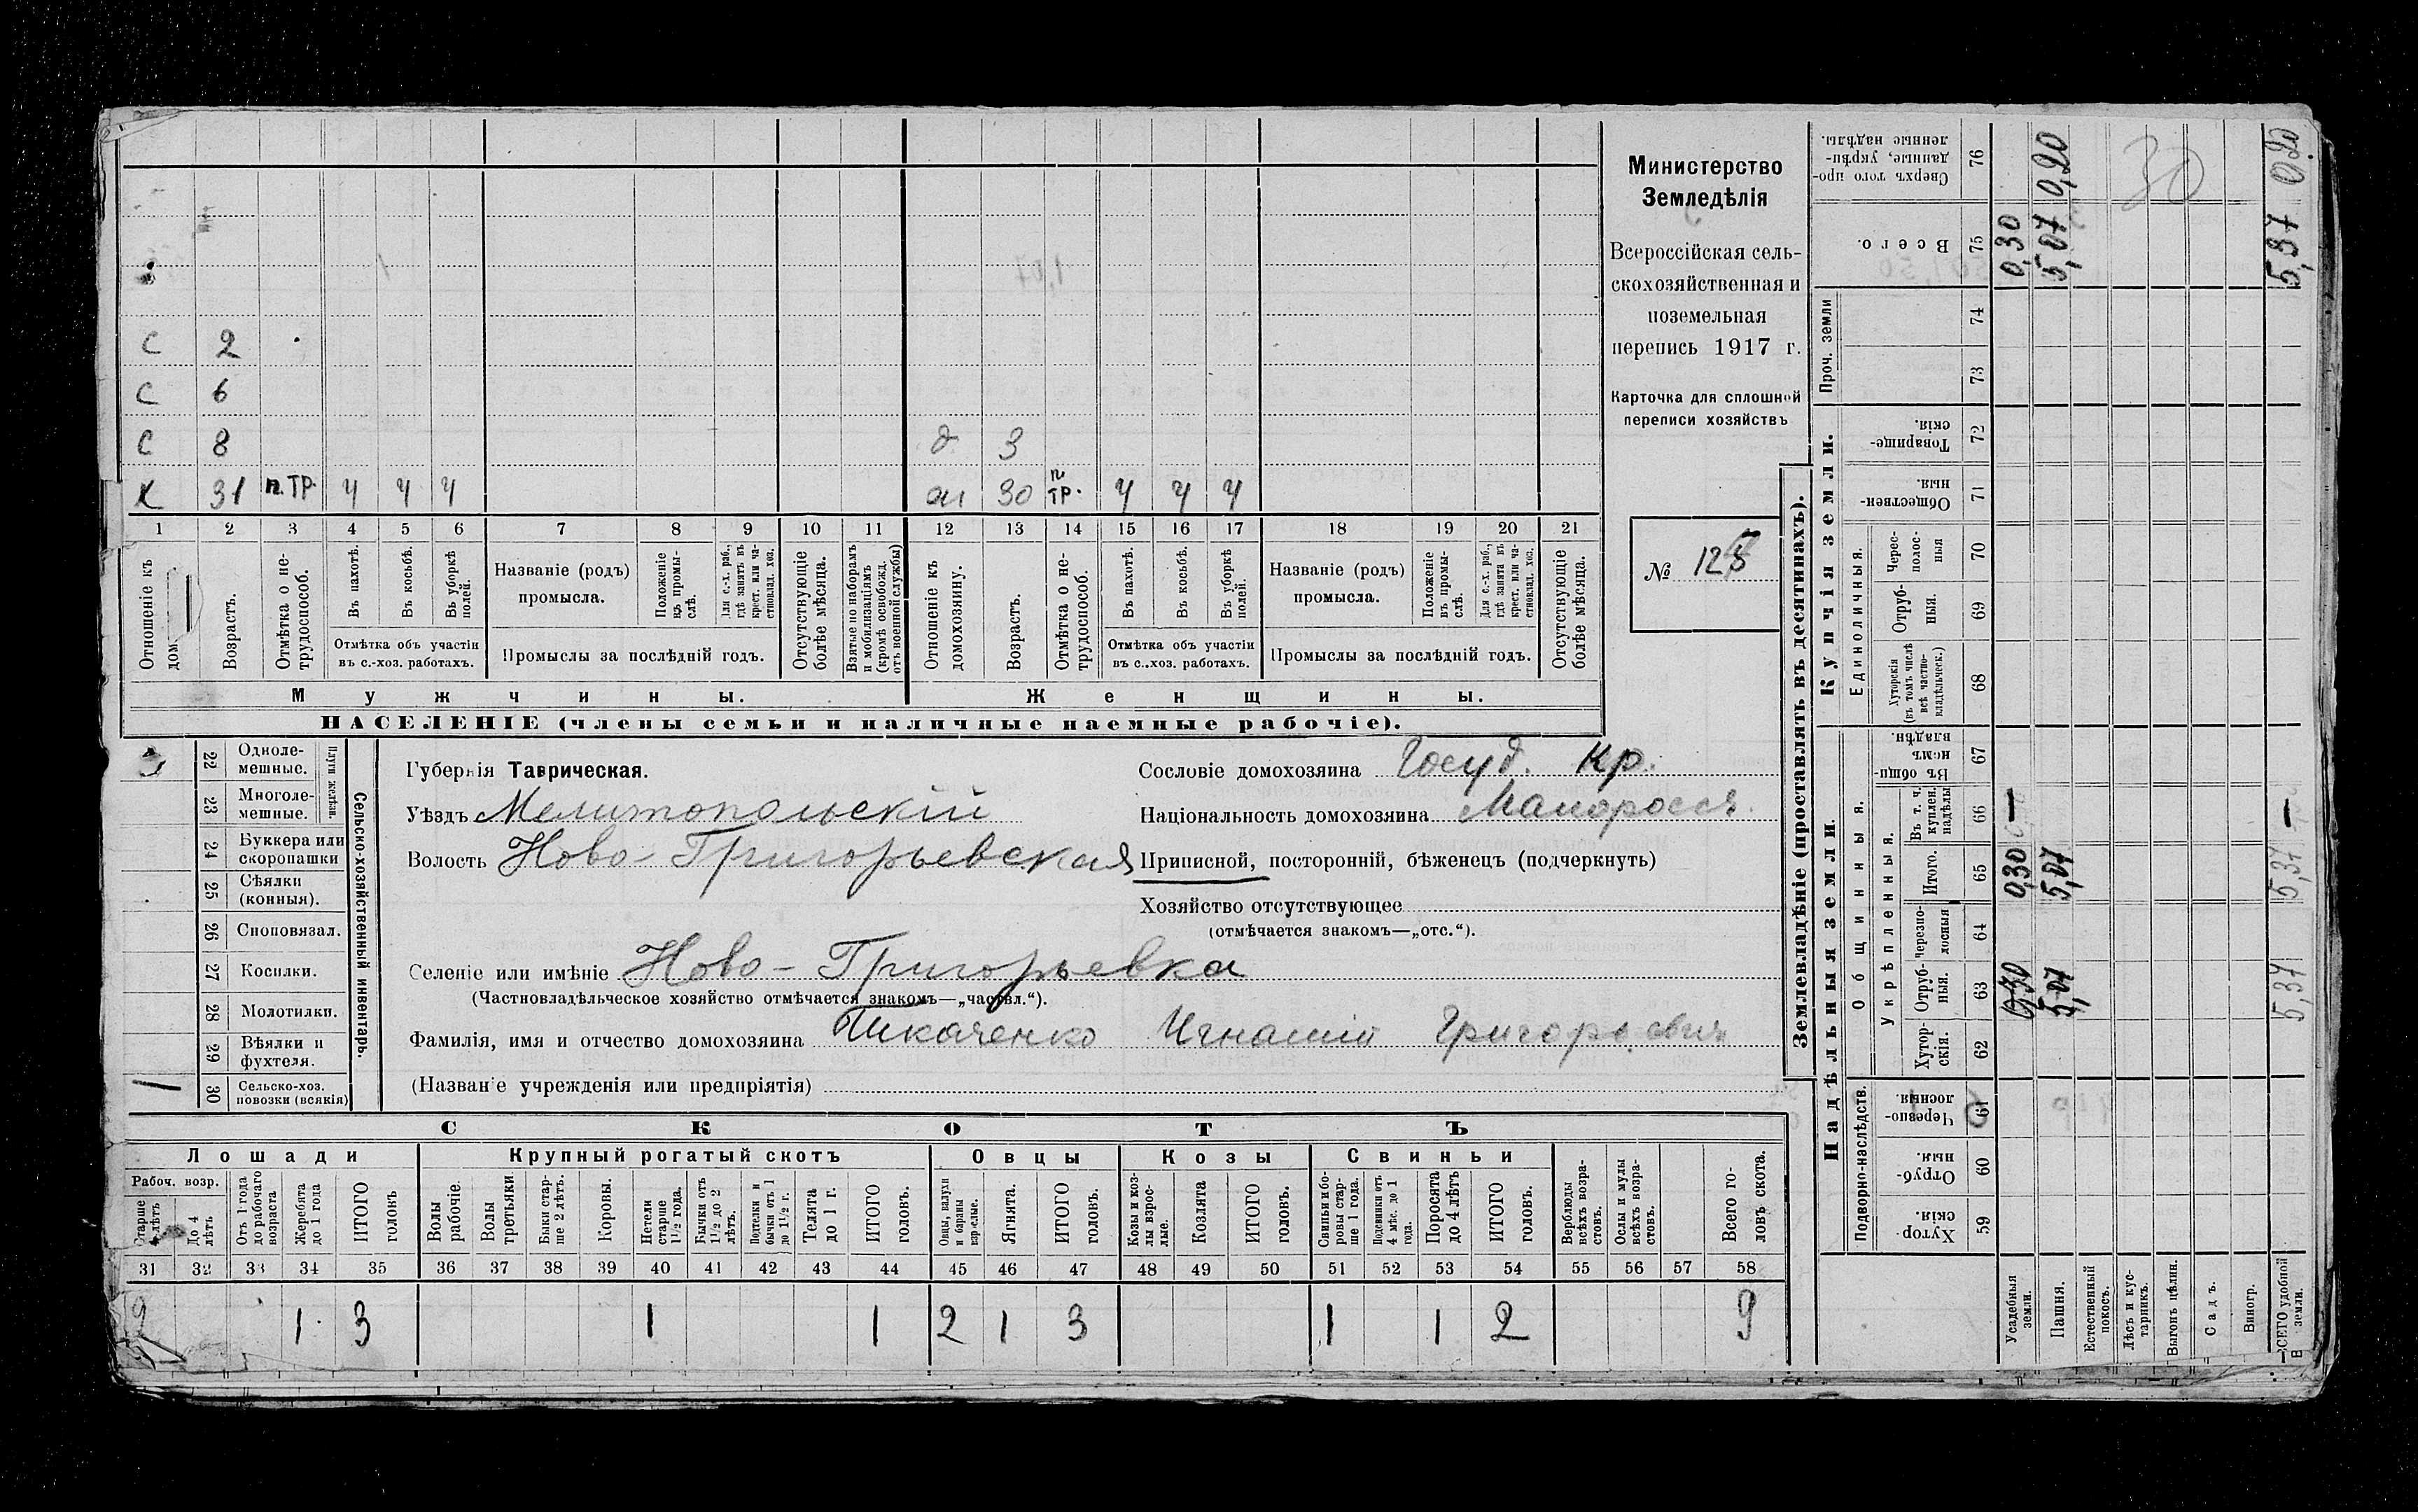 С 2
С 6
С 8 д. 3
Х 31 п. ТР. Ч Ч Ч ж 30 п ТР. Ч Ч Ч
1 2 3 4 5 6 7 8 9 10 11 12 13 14 15 16 17 18 19 20 21
Отношеніе къ дом
Возрастъ.
Отмѣтка о нетрудоспособ.
Въ пахотѣ.
Въ косьбѣ.
Въ уборкѣ полей.
Отмѣтка объ участіи
въ с.-хоз. работахъ.
Названіе (родъ)
промысла.
Положеніе въ промыслѣ.
Для с.-х. раб., гдѣ занятъ въ крест. или частновлад. хоз.
Промыслы за послѣдній годъ.
Отсутствующіе болѣе мѣсяца.
Взятые по наборамъ и мобилизаціямъ (кромѣ освобожд. отъ военной службы)
Отношеніе къ домохозяину.
Возрастъ.
Отмѣтка о нетрудоспособ.
Въ пахотѣ.
Въ косьбѣ.
Въ уборкѣ полей.
Отмѣтка объ участіи
въ с.-хоз. работахъ.
Названіе (родъ)
промысла.
Положеніе въ промыслѣ.
Для с.-х. раб., гдѣ занята въ крест. или частновлад. хоз.
Промыслы за послѣдній годъ.
Отсутствующіе болѣе мѣсяца.
Мужчины.
Женщины.
НАСЕЛЕНІЕ (члены семьи и наличные наемные рабочіе).
Министерство
Земледѣлія
Всероссійская сель-
скохозяйственная и
поземельная
перепись 1917 г.
Карточка для сплошной
переписи хозяйствъ
№ 125
22 Одноле-
мешные.
23 Многоле-
мешные.
Плуги желѣзн.
24 Буккера или
скоропашки
25 Сѣялки
(конныя).
26 Сноповязал.
27 Косилки.
28 Молотилки.
29 Вѣялки и
фухтеля.
1 30 Сельско-хоз.
повозки (всякія)
Сельско-хозяйственный инвентарь.
Губернія Таврическая.
Уѣздъ Мелитопольскій
Волость Ново-Григорьевская
Сословіе домохозяина Госуд. кр.
Національность домохозяина Малоросъ.
Приписной, посторонній, бѣженецъ (подчеркнуть)
Хозяйство отсутствующее
(отмѣчается знакомъ—„отс.“).
Селеніе или имѣніе Ново-Григорьевка
(Частновладѣльческое хозяйство отмѣчается знакомъ—„частвл.“).
Фамилія, имя и отчество домохозяина Ткаченко Игнатій Григорьевич
(Названіе учрежденія или предпріятія)
СКОТЪ
Лошади Крупный рогатый скотъ Овцы Козы Свиньи
Рабоч. возр.
Старше 4 лѣтъ
До 4 лѣтъ
Отъ 1 года до рабочаго возраста
Жеребята до 1 года
ИТОГО головъ
Волы рабочіе.
Волы третьяки.
Быки старше 2 лѣтъ.
Коровы.
Нетели старше 1½ года.
Бычки отъ 1½ до 2 лѣтъ.
Подтелки и бычки отъ 1 до 1½ г.
Телята до 1 г.
ИТОГО головъ.
Овцы, валухи и бараны взрослые.
Ягнята.
ИТОГО головъ.
Козы и козлы взрослые.
Козлята
ИТОГО головъ.
Свиньи и боровы старше 1 года.
Подсвинки отъ 4 мѣс. до 1 года.
Поросята до 4 лѣтъ
ИТОГО головъ.
Верблюды всѣхъ возрастовъ.
Ослы и мулы всѣхъ возрастовъ.
Всего головъ скота.
31 32 33 34 35 36 37 38 39 40 41 42 43 44 45 46 47 48 49 50 51 52 53 54 55 56 57 58
2 1 3 1 1 2 1 3 1 1 2 9
Землевладѣніе (проставлять въ десятинахъ).
Надѣльныя земли.
Купчія земли.
Проч. земли
Подворно-наслѣдств.
Общинныя.
Укрѣпленныя.
Единоличныя.
Сверхъ того проданные, укрѣпленные надѣлы. 76
Всего. 75
74
73
Товарищескія. 72
Общественныя. 71
Чересполосныя 70
Отрубныя. 69
Хуторскія (въ томъ числѣ всѣ частновладѣльческ.) 68
Въ общинномъ владѣн. 67
Въ т. ч. куплен. надѣлы 66
Итого. 65
Черезполосныя 64
Отрубныя. 63
Хуторскія. 62
Черезполосныя. 61
Отрубныя. 60
Хуторскія. 59
Усадебныя земли. 0,30 0,30 — 0,30
Пашня. 5,07 5,07 5,07 0,20
Естественный покосъ.
Лѣсъ и кустарникъ. 30
Выгонъ цѣлин.
Садъ.
Виногр.
ВСЕГО удобной земли. 5,37 5,37 — 5,37 0,20